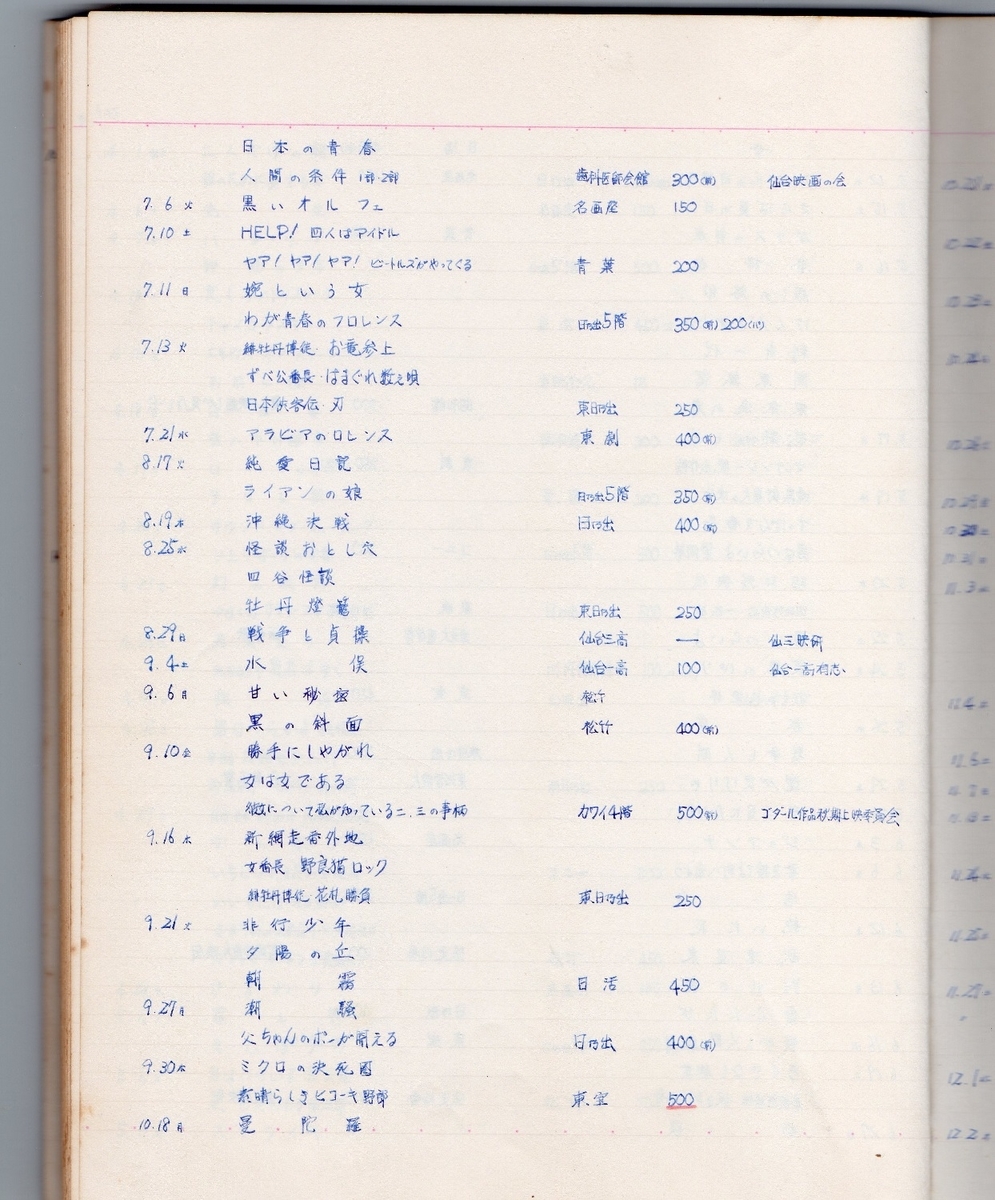 日本の青春
人間の条件 1部・2部 歯科医師会館 300(前) 仙台映画の会
7.6 火 黒いオルフェ 名画座 150
7.10 土 HELP! 四人はアイドル
ヤア!ヤア!ヤア! ビートルズがやってくる 青葉 200
7.11 日 婉という女
わが青春のフロレンス 日乃出5階 350(前) 200
7.13 火 緋牡丹博徒・お竜参上
ずべ公番長・はまぐれ数え唄
日本侠客伝・刃 東日乃出 250
7.21 水 アラビアのロレンス 東劇 400(前)
8.17 火 純愛日記
ライアンの娘 日乃出5階 350(前)
8.19 木 沖縄決戦 日乃出 400(前)
8.25 水 怪談おとし穴
四谷怪談
牡丹燈籠 東日乃出 250
8.29 日 戦争と貞操 仙台三高 — 仙三映研
9.4 土 水俣 仙台一高 100 仙台一高有志
9.6 月 甘い秘密 松竹
黒の斜面 松竹 400(前)
9.10 金 勝手にしやがれ
女は女である
彼女について私が知っている二、三の事柄 カワイ4階 500(前) ゴダール作品秋期上映委員会
9.16 木 新網走番外地
女番長 野良猫ロック
緋牡丹博徒・花札勝負 東日乃出 250
9.21 火 非行少年
夕陽の丘
朝霧 日活 450
9.27 月 潮騒
父ちゃんのポーが聞える 日乃出 400(前)
9.30 木 ミクロの決死圏
素晴らしきヒコーキ野郎 東宝 500
10.18 月 曼陀羅